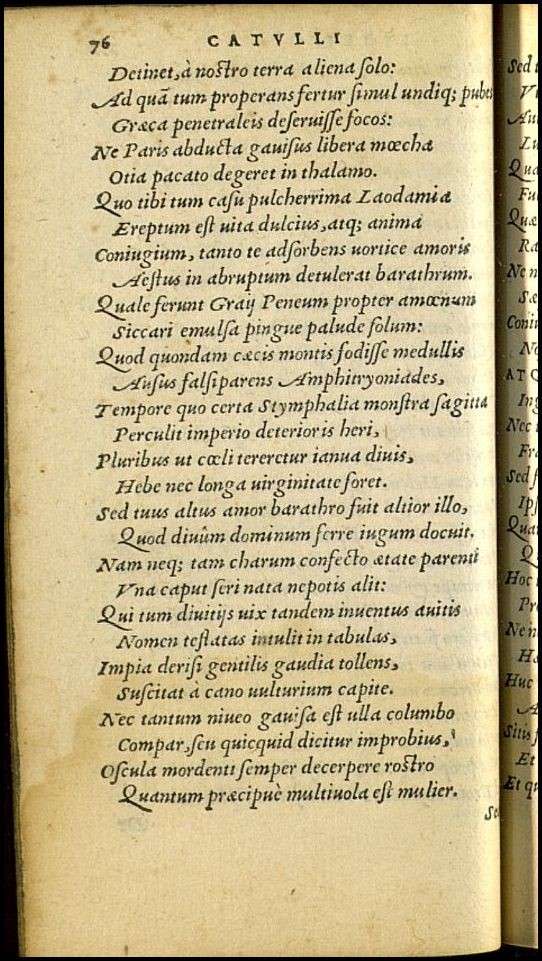 76 CATVLLI
Detinet, à nostro terra aliena solo:
Ad quã tum properans fertur simul undiq; pubes
Græca penetraleis deseruisse focos:
Ne Paris abducta gauisus libera mœcha
Otia pacato degeret in thalamo.
Quo tibi tum casu pulcherrima Laodamia
Ereptum est uita dulcius, atq; anima
Coniugium, tanto te adsorbens uortice amoris
Aestus in abruptum detulerat barathrum.
Quale ferunt Graij Peneum propter amœnum
Siccari emulsa pingue palude solum:
Quod quondam cæcis montis fodisse medullis
Ausus falsiparens Amphitryoniades,
Tempore quo certa Stymphalia monstra sagitta
Perculit imperio deterioris heri,
Pluribus ut cœli tereretur ianua diuis,
Hebe nec longa uirginitate foret.
Sed tuus altus amor barathro fuit altior illo,
Quod diuûm dominum ferre iugum docuit.
Nam neq; tam charum confecto ætate parenti
Vna caput seri nata nepotis alit:
Qui tum diuitijs uix tandem inuentus auitis
Nomen testatas intulit in tabulas,
Impia derisi gentilis gaudia tollens,
Suscitat à cano uulturium capite.
Nec tantum niueo gauisa est ulla columbo
Compar, seu quicquid dicitur improbius,
Oscula mordenti semper decerpere rostro
Quantum præcipuè multiuola est mulier.
Sed t
V
Au
Lu
Qua
Fu
Quæ
Ra
Ne n
Sæ
Coniu
No
ATQ
Ing
Nec i
Fra
Sed f
Ips
Quar
Q
Hoc
Pr
Ne n
Ha
Huc
A
Sitis f
Et
Et qu